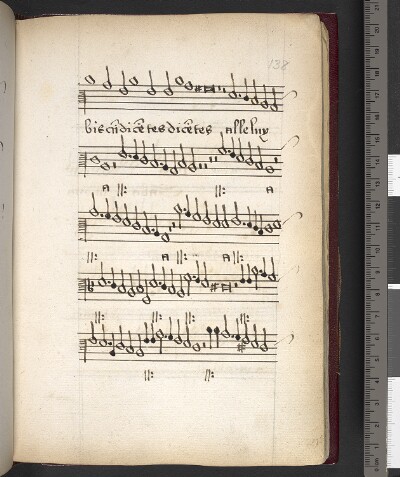 138
bis cū dicētes dicētes alleluy
a :||: :||: a
:||: a :||: a :||:
:||: :||: :||: :||:
:||: :||: